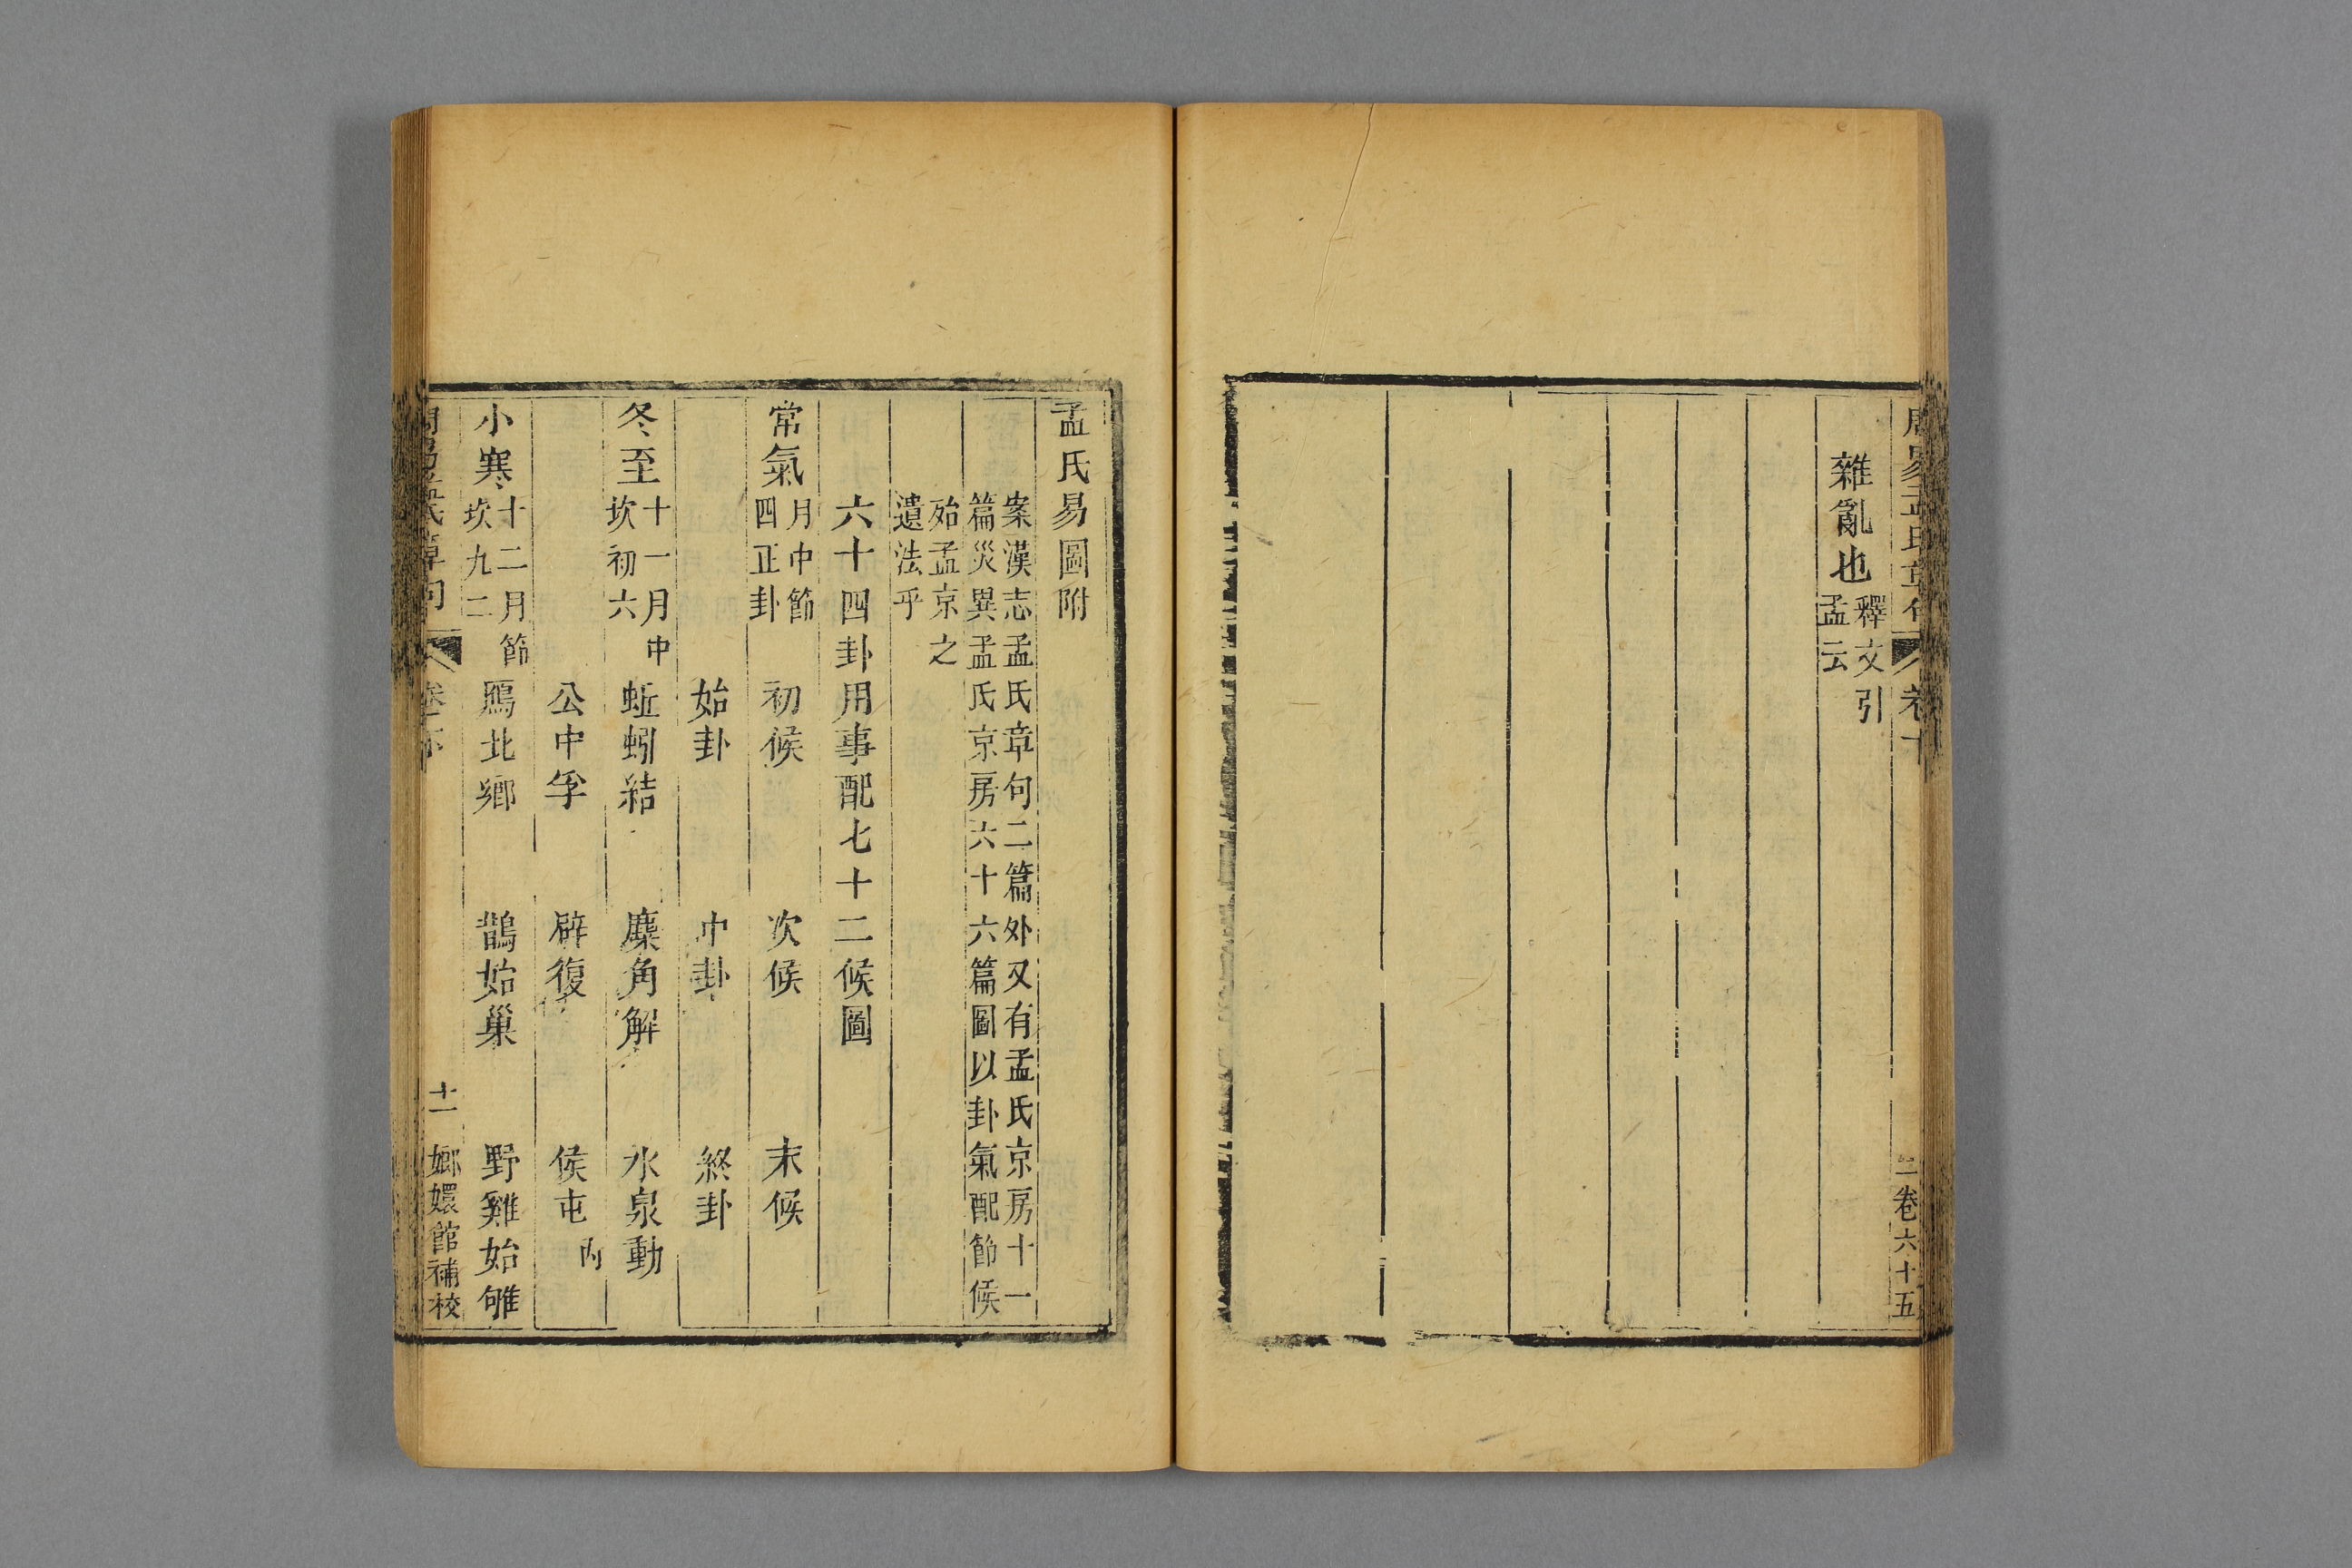 周易孟氏章句 卷下 二卷六十五
雜亂也釋文引孟云
孟氏易圖附
案漢志孟氏章句二篇外又有孟氏京房十一
篇災異孟氏京房六十六篇圖以卦氣配節候
殆孟京之
遺法乎
六十四卦用事配七十二候圖
常氣月中節四正卦 初候 次候 末候
始卦 中卦 終卦
冬至十一月中坎初六 蚯蚓結 麋角解 水泉動
公中孚 辟復 侯屯內
小寒十二月節坎九二 鴈北鄉 鵲始巢 野雞始雊
周易孟氏章句 卷下 十一 嫏嬛館補校